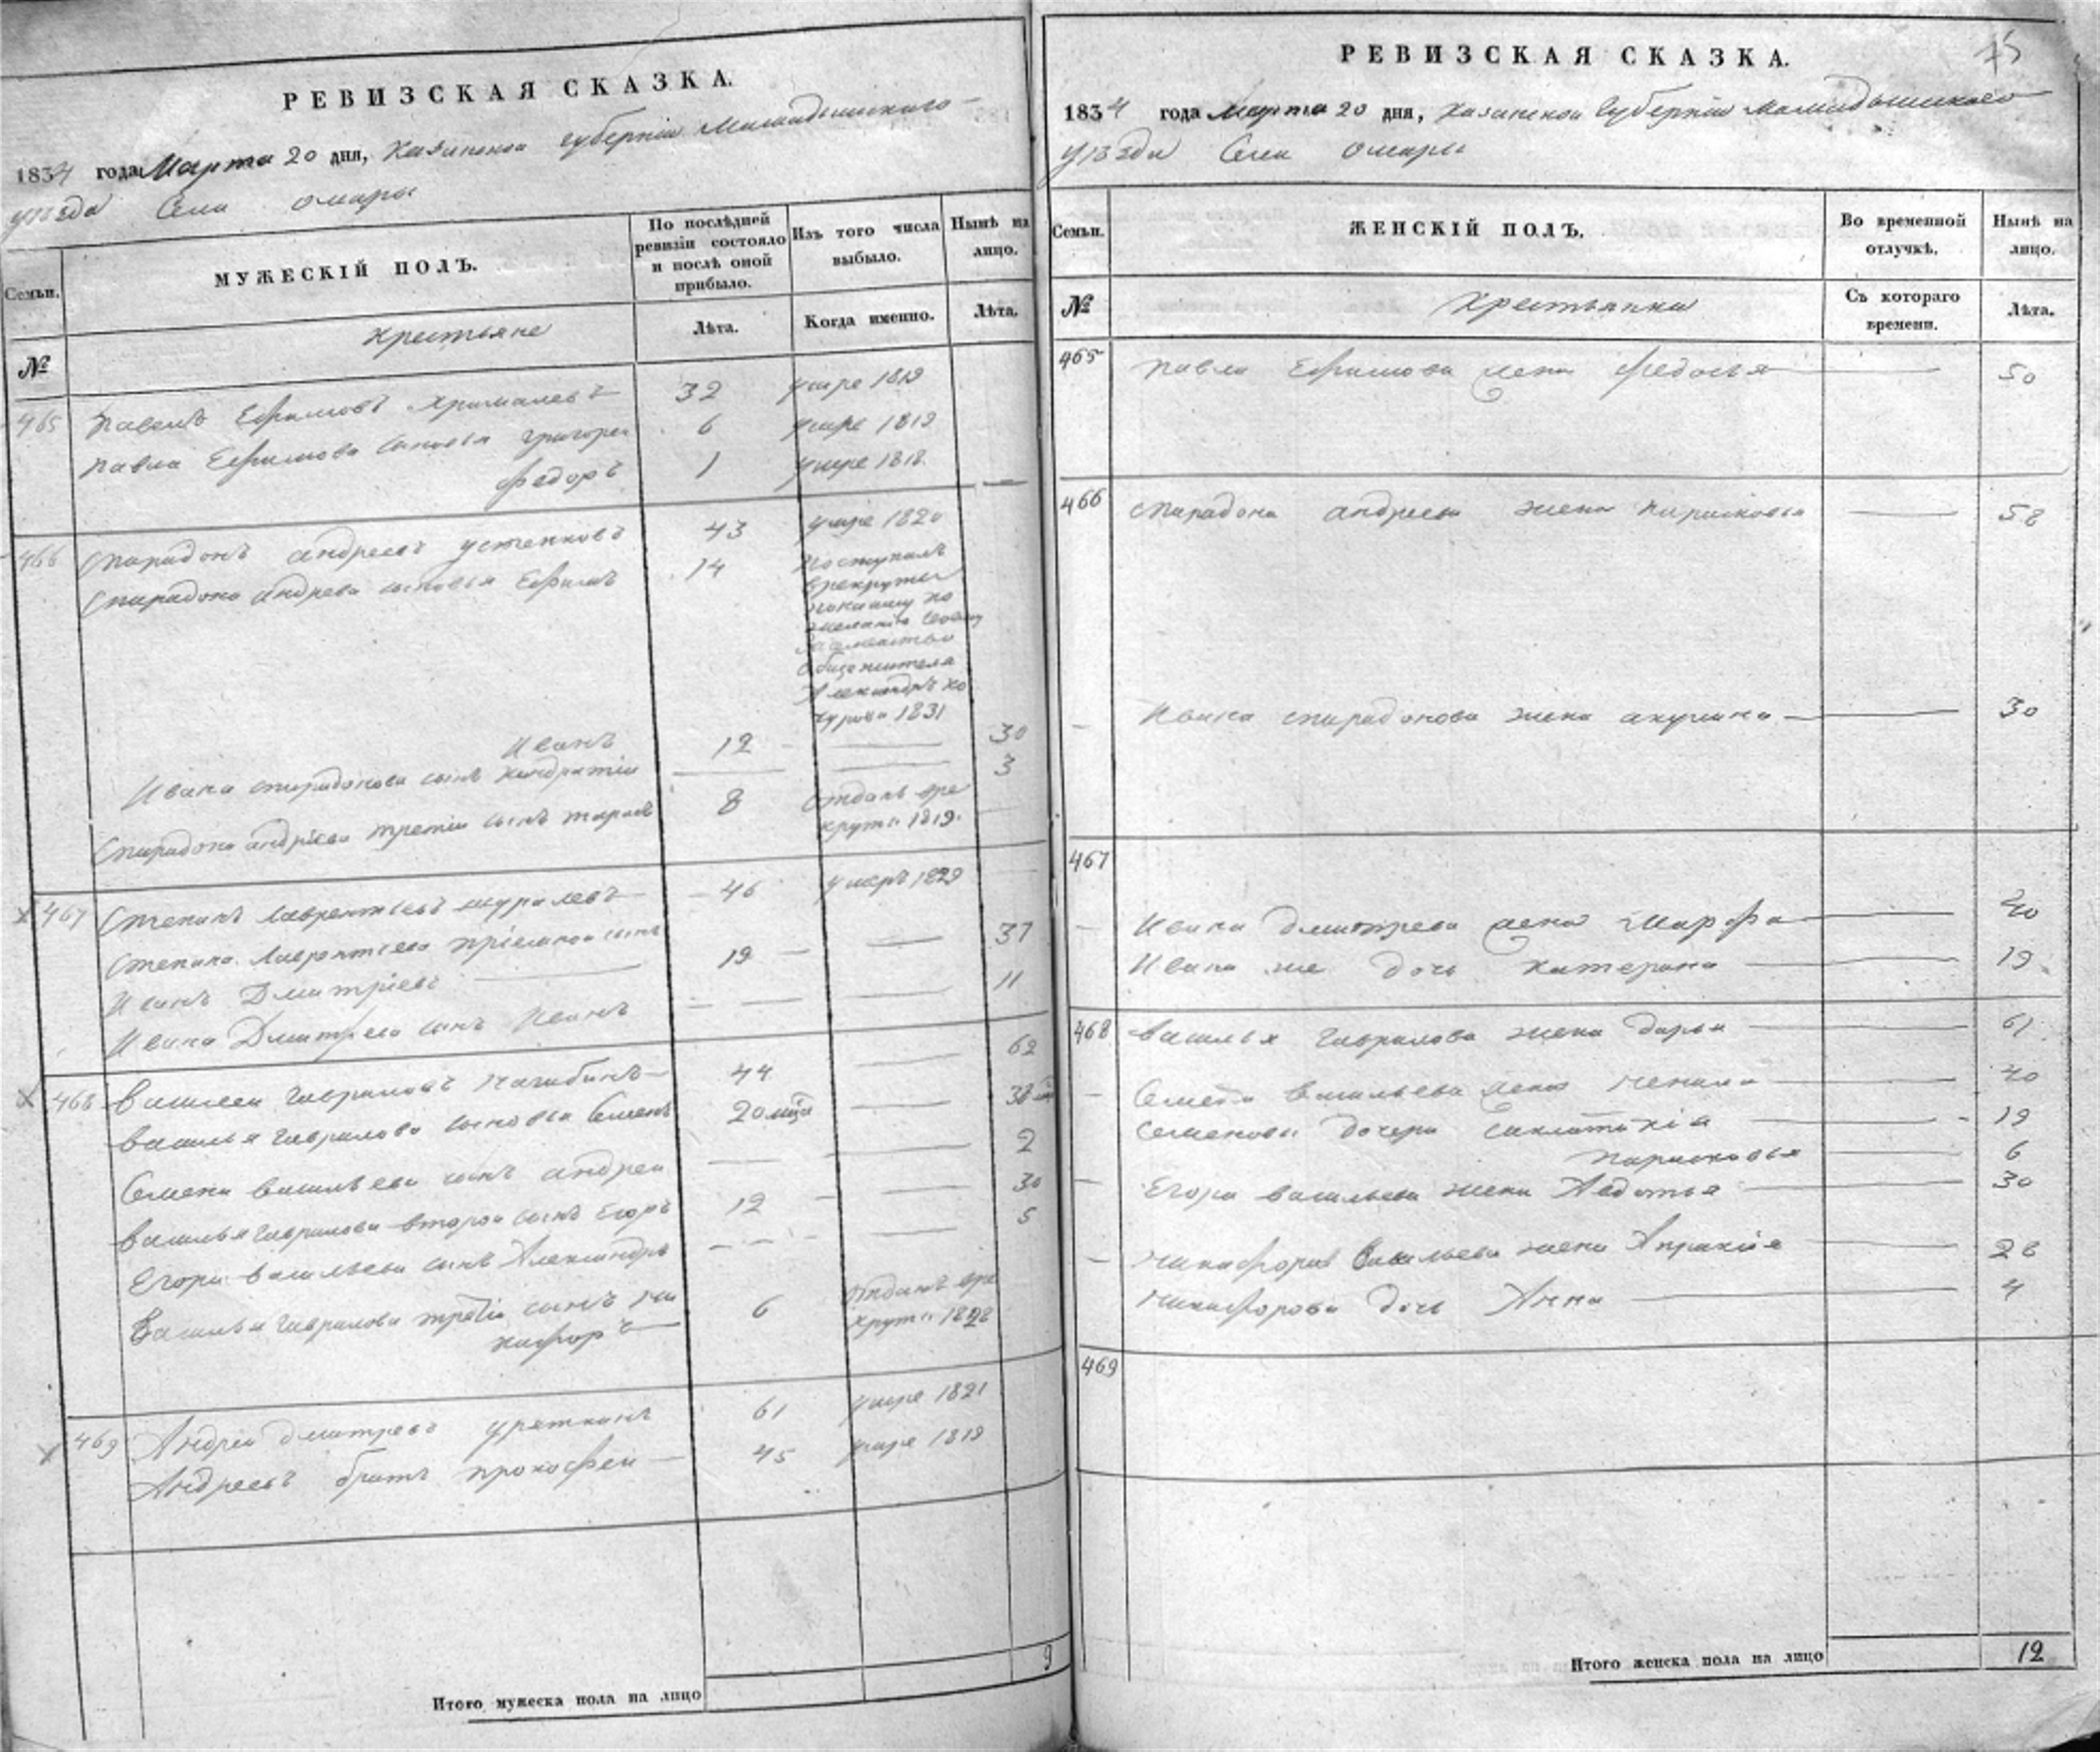 РЕВИЗСКАЯ СКАЗКА.
1834 года Марта 20 дня, Казанской Губерніи Мамадышскаго
уѣзда Села Омары
Семьи.
МУЖЕСКІЙ ПОЛЪ.
По послѣдней
ревизіи состояло
и послѣ оной
прибыло.
Изъ того числа
выбыло.
Нынѣ на
лицо.
№
Крестьяне
Лѣта.
Когда именно.
Лѣта.
465 Павелъ Ефимовъ 32 умре 1819
Павла Ефимова сыновья Григореи 6 умре 1819
Федоръ 1 умре 1818
466 Спиридонъ Андреевъ 43 умре 1820
Спиридона Андреева сыновья Ефимъ 14 Поступилъ
врекруты
по
желанію
общежителя
1831
Иванъ 12 30
Ивана Спиридонова сынъ Кондратіи 3
Спиридона Андрѣева третіи сынъ Тарасъ 8 Отданъ вре
круты 1819.
467 Степанъ Лаврентьевъ 46 умеръ 1829
Степана Лаврентьева пріемнои сынъ
Иванъ Дмитріевъ 19 37
Ивана Дмитрева сынъ Иванъ 11
468 Василеи Гавриловъ 44 62
Василья Гаврилова сыновья Семенъ 20
Семена Васильева сынъ Андреи 2
Василья Гаврилова второи сынъ Егоръ 12 30
Егора Васильева сынъ Александръ 5
Василья Гаврилова третіи сынъ Ни
кифоръ 6 Отданъ вре
круты 1828
469 Андреи Дмитревъ 61 умре 1821
Андреевъ братъ Прокофеи 45 умре 1819
Итого мужеска пола на лицо 9
75
РЕВИЗСКАЯ СКАЗКА.
1834 года Марта 20 дня, Казанской Губерніи Мамадышскаго
уѣзда Села Омары
Семьи.
ЖЕНСКІЙ ПОЛЪ.
Во временной
отлучкѣ.
Нынѣ на
лицо.
№
Крестьянки
Съ котораго
времени.
Лѣта.
465 Павла Ефимова жена Федосья 50
466 Спиридона Андреева жена Парасковья 58
Ивана Спиридонова жена Акулина 30
467
Ивана Дмитрева жена Марфа 40
Ивана же дочь Катерина 19
468 Василья Гаврилова жена Дарья 61
Семена Васильева жена 40
Семенова дочери 19
Парасковья 6
Егора Васильева жена Авдотья 30
Никифора Васильева жена 28
Никифорова дочь Анна 4
469
Итого женска пола на лицо 12